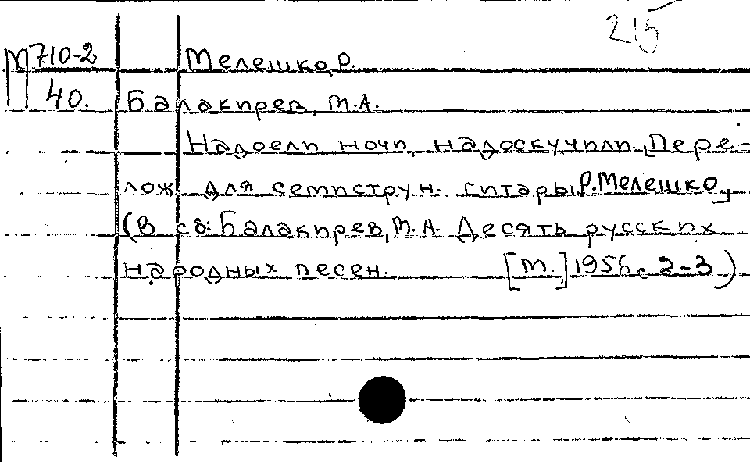 215
М710-2 Мелешко, Р.
40. Балакирев, М.А.
Надоели ночи, надоскучили, Пере-
лож. для семиструн. гитары Р.Мелешко,
(В сб: Балакирев, М.А. Десять русских
народных песен. [М.] 1956, с 2-3)